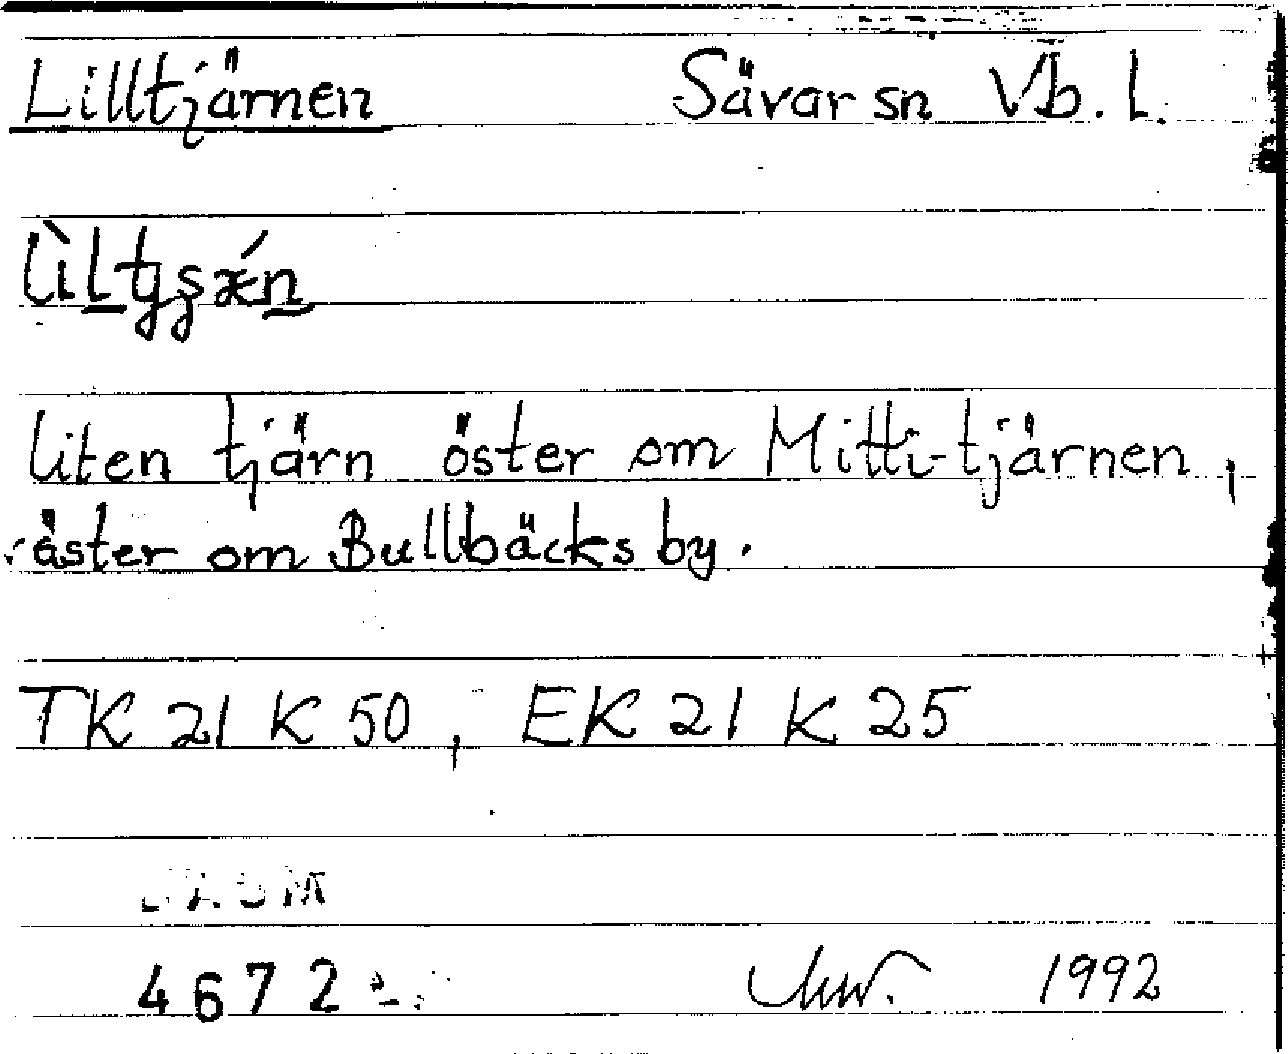 Lilltjärnen Sävar sn Vb. l.
liten tjärn öster om Mitti-tjärnen,
öster om Bullbäcks by.
TK 21 K 50, EK 21 K 25
4672
1992